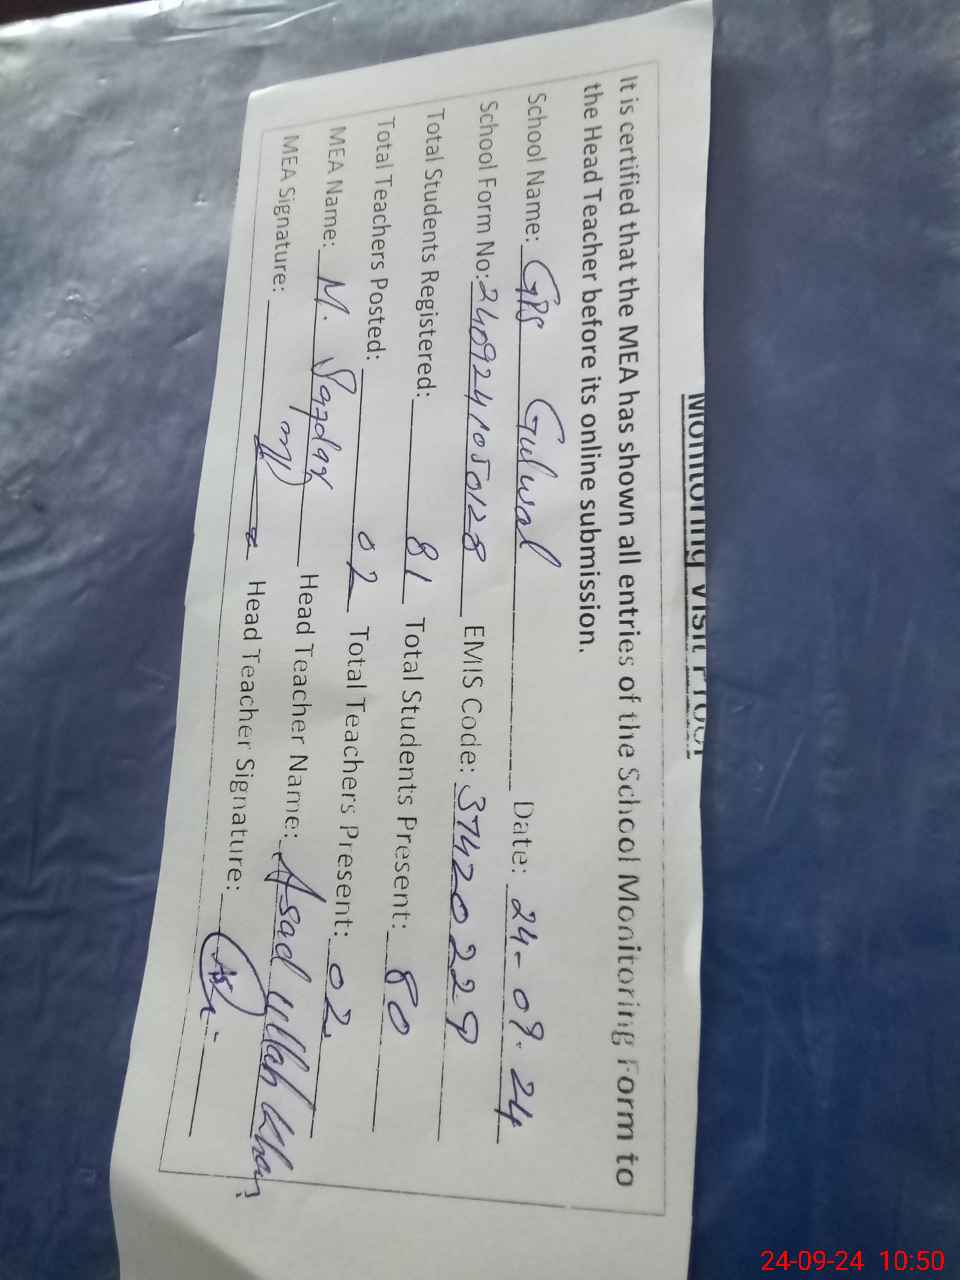 Monitoring Visit Proof
It is certified that the MEA has shown all entries of the School Monitoring Form to
the Head Teacher before its online submission.
School Name: GPS Gulwal Date: 24-09-24
School Form No: 2409241050128 EMIS Code: 37420229
Total Students Registered: 81 Total Students Present: 80
Total Teachers Posted: 02 Total Teachers Present: 02
MEA Name: M. Head Teacher Name: Asad Ullah Khan
MEA Signature: Head Teacher Signature:
24-09-24 10:50